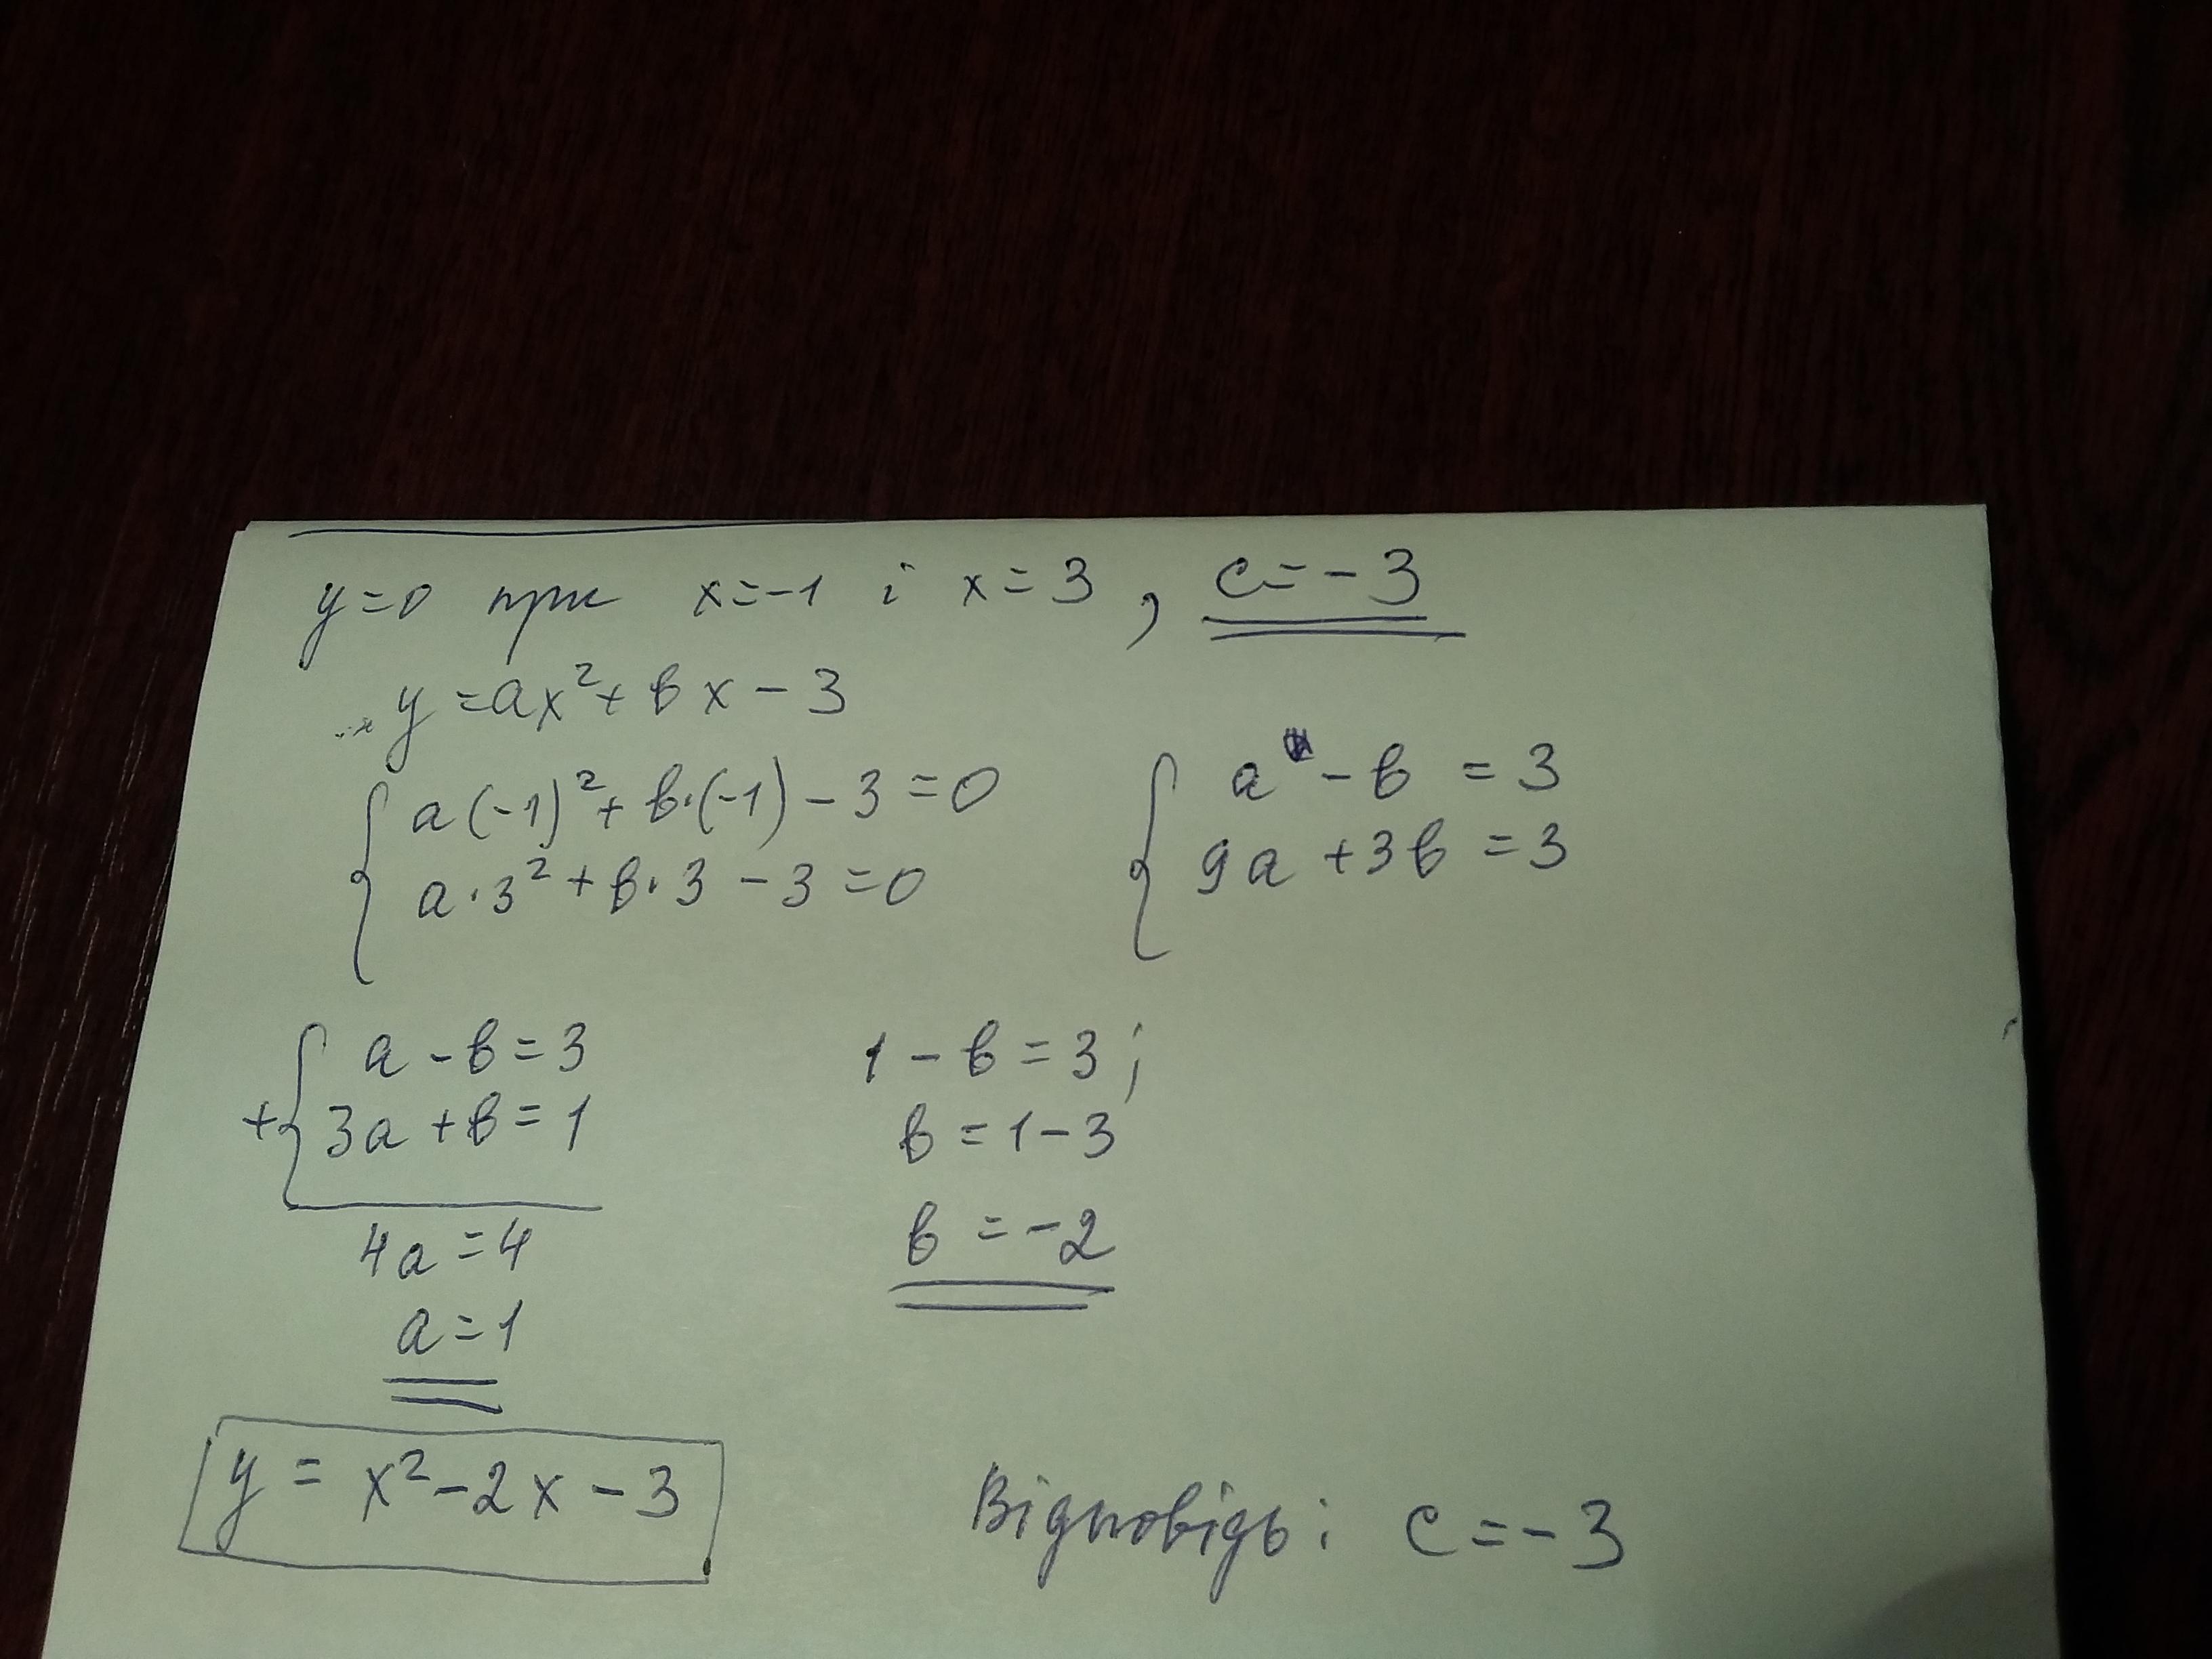 y=0 при x=-1 і x=3, c=-3
y=ax²+вx-3
a(-1)²+в·(-1)-3=0
a·3²+в·3-3=0
a-в=3
9a+3в=3
a-в=3
+ 3a+в=1
4a=4
a=1
1-в=3;
в=1-3
в=-2
y=x²-2x-3
Відповідь: c=-3